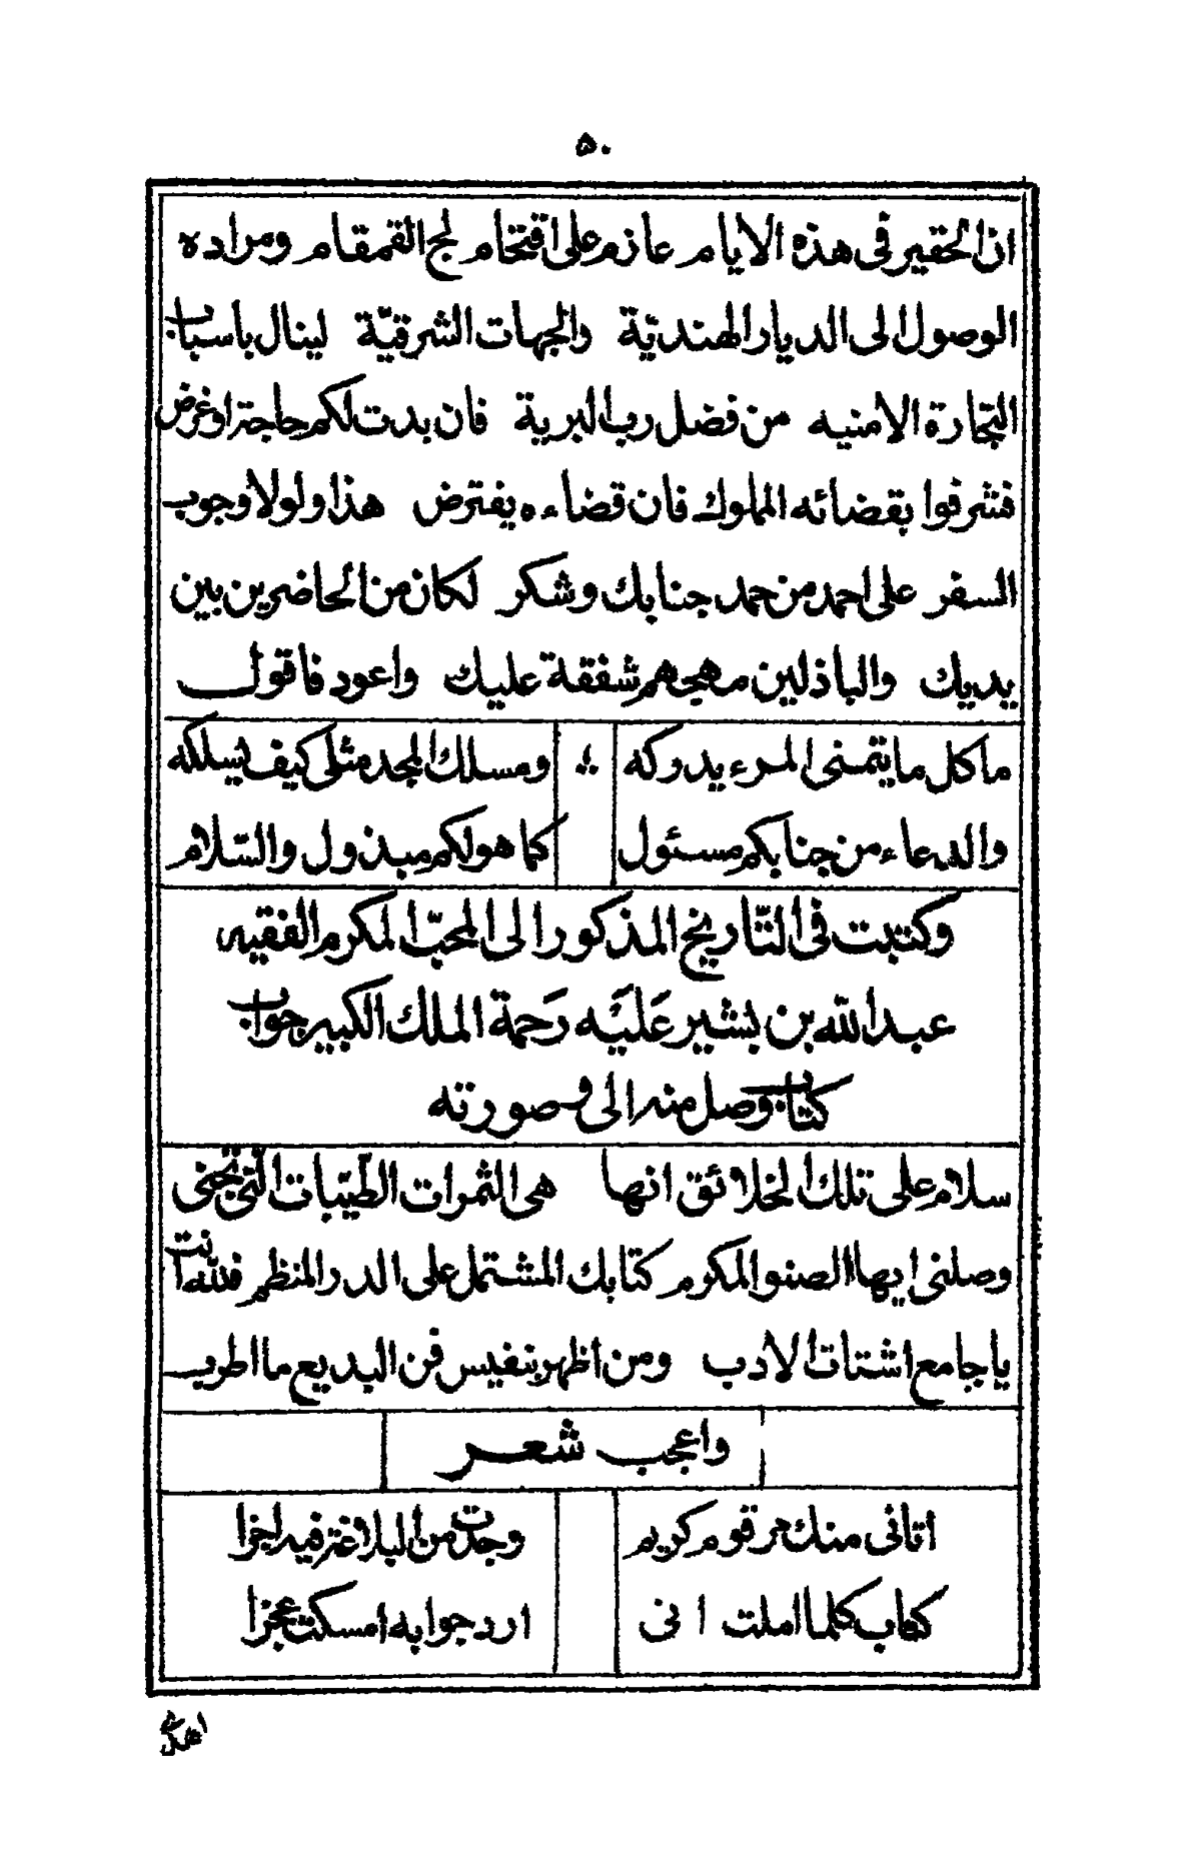 ٥٠
ان الحقير في هذه الايام عازم على اقتحام لج القمقام ومراده
الوصول الى الديار الهنديّة والجهات الشرقيّة لينال باسباب
التجارة الامنيه من فضل رب البرية فان بدت لكم حاجة او غرض
فشرفوا بقضائه المملوك فان قضاءه يفترض هذا ولولا وجوب
السفر على احمد من حمد جنابك وشكر لكان من الحاضرين بين
يديك والباذلين مهجهم شفقة عليك واعود فاقول
ماكل مايتمنى المرء يدركه ومسلك المجد مثلى كيف يسلكه
والدعاء من جنابكم مسئول كما هو لكم مبذول والسّلام
وكتبت في التّاريخ المذكور الى المحبّ المكرم الفقيه
عبد الله بن بشير عَلَيْه رَحمة الملك الكبير جواب
كتاب وصل منه الى وصورته
سلام على تلك الخلائق انها هي الثمرات الطّيّبات التي تجنى
وصلنى ايها الصنو المكرم كتابك المشتمل على الدر المنظم فلله انت
ياجامع اشتات الادب ومن اظهر بنفيس فن البديع ما اطرب
واعجب شعر
اتانى منك مرقوم كريم وجدت من البلاغة فيه اجزا
كتاب كلما املت انى ارد جوابه امسكت عجزا